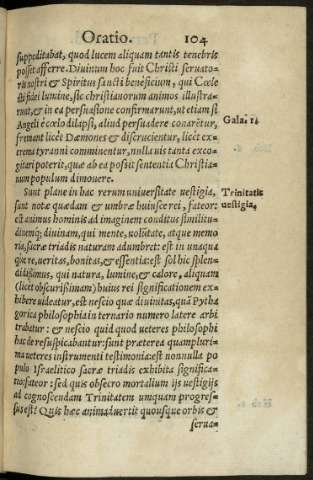 Oratio. 104
suppeditabat, quod lucem aliquam tantis tenebris
posset afferre. Diuinum hoc fuit Christi seruato-
ris nostri & Spiritus sancti beneficium, qui Cœle
sti fidei lumine, sic christianorum animos illustra-
runt, & in ea persuasione confirmarunt, ut etiam si
Angeli è cœlo dilapsi, aliud persuadere conarētur,
fremant licèt Dæmones & discrucientur, licèt ex-
trema tyranni comminentur, nulla uis tanta exco-
gitari poterit, quæ ab ea possit sententia Christia-
num populum dimouere.
Gala. 1.
Sunt plane in hac rerum uniuersitate uestigia,
sunt notæ quædam et umbræ huiusce rei, fateor:
est animus hominis ad imaginem conditus similitu-
dinemq; diuinam, qui mente, uolūtate, atque memo
ria, sacræ triadis naturam adumbret: est in unaqua
que re, ueritas, bonitas, & essentia: est sol hic splen-
didissimus, qui natura, lumine, & calore, aliquam
(licet obscurissimam) huius rei significationem ex-
hibere uideatur, est nescio quæ diuinitas, quā Pytha
gorica philosophia in ternario numero latere arbi
trabatur: & nescio quid quod ueteres philosophi
hac de re suspicabantur: sunt præterea quampluri-
ma ueteris instrumenti testimonia: est nonnulla po
pulo Israelitico sacræ triadis exhibita significa-
tio: fateor: sed quis obsecro mortalium ijs uestigijs
ad cognoscendam Trinitatem umquam progres-
sus est? Quis hæc animaduertit quousque orbis &
Trinitatis
uestigia.
serua-